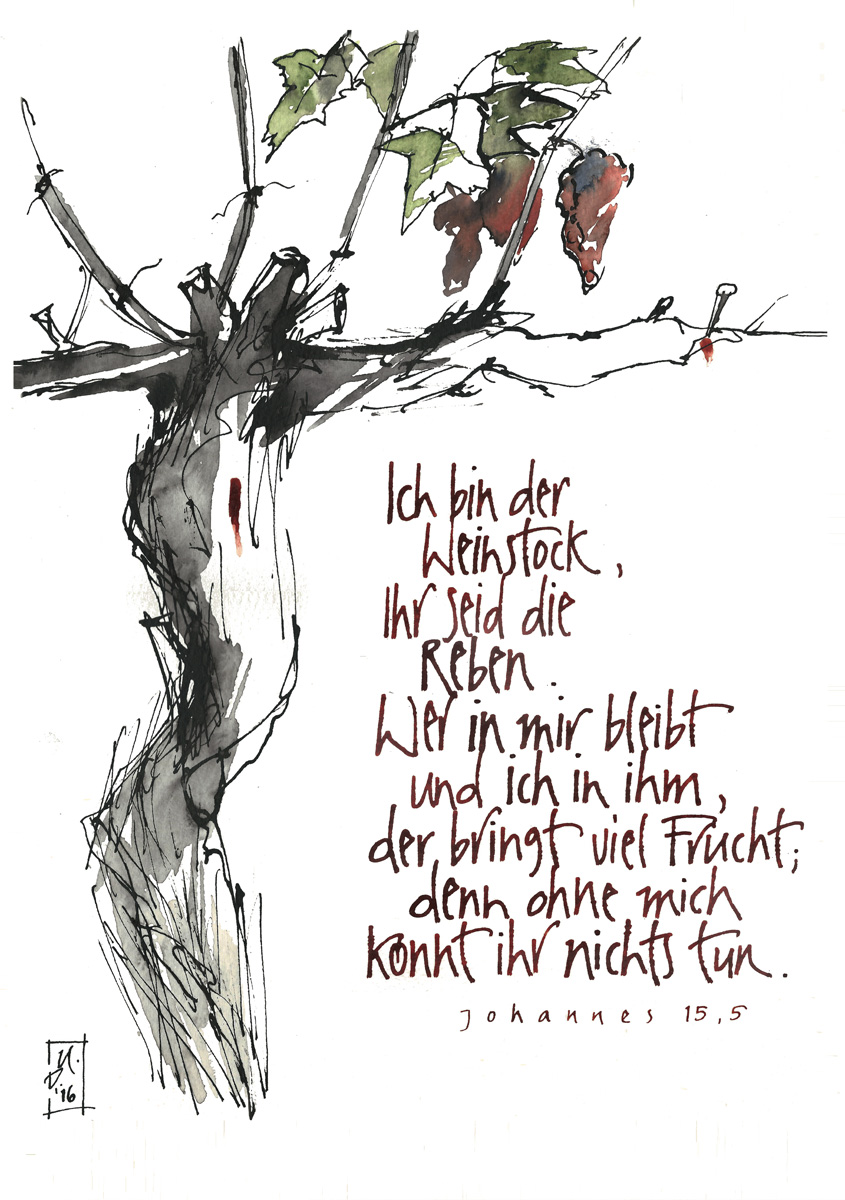 Ich bin der
Weinstock,
Ihr seid die
Reben.
Wer in mir bleibt
und ich in ihm,
der bringt viel Frucht;
denn ohne mich
könnt ihr nichts tun.
Johannes 15,5
'16